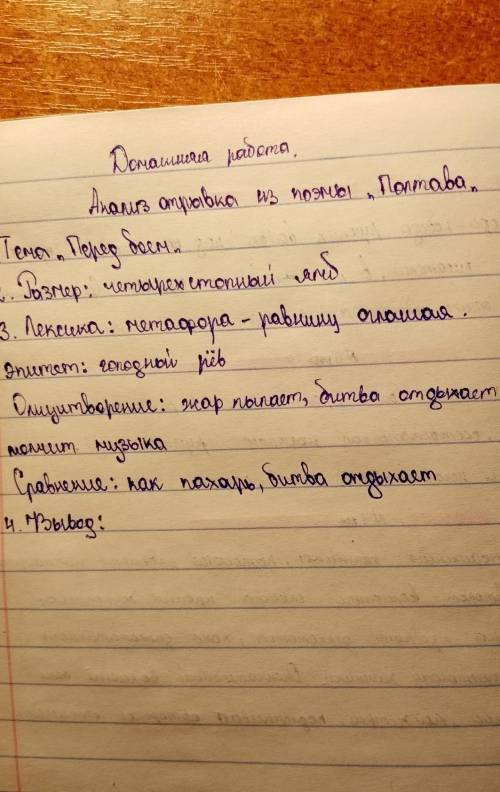 Домашняя работа.
Анализ отрывка из поэмы „Полтава„
Тема „Перед боем„
2. Размер: четырехстопный ямб
3. Лексика: метафора - равнину оглашая.
эпитет: голодный рёв
Олицитворение: жар пылает, битва отдыхает
молчит музыка
Сравнение: как пахарь, битва отдыхает
4. Вывод: